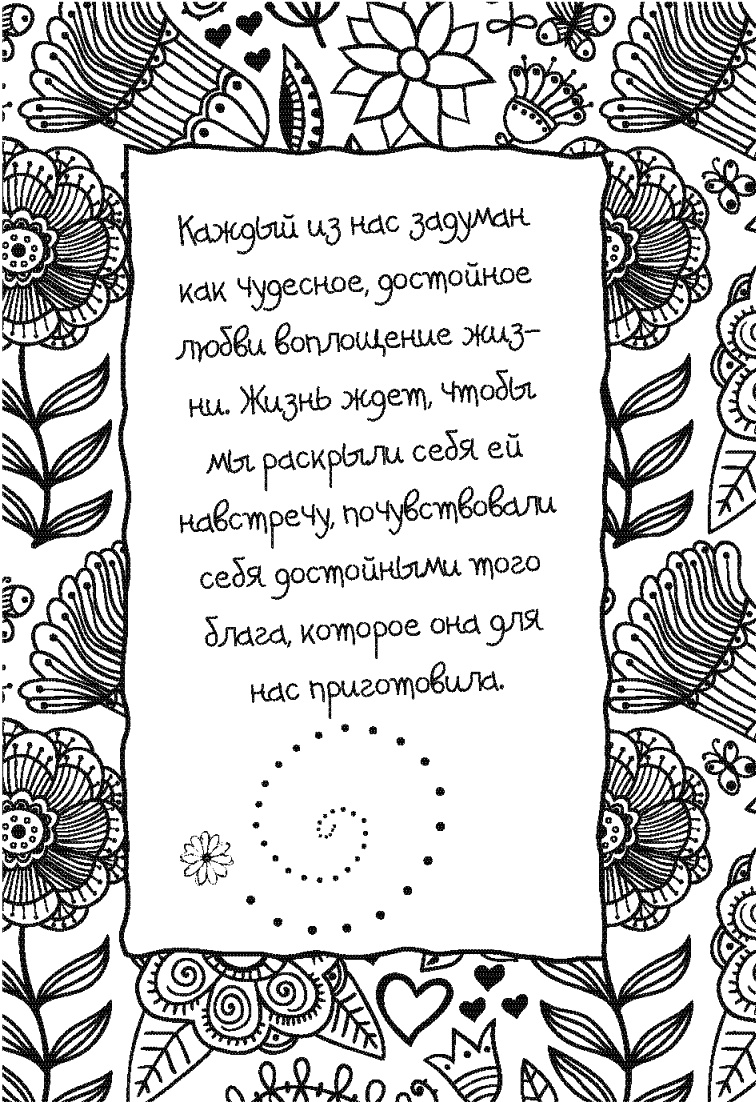 Каждый из нас задуман
как чудесное, достойное
любви воплощение жиз–
ни. Жизнь ждет, чтобы
мы раскрыли себя ей
навстречу, почувствовали
себя достойными того
блага, которое она для
нас приготовила.